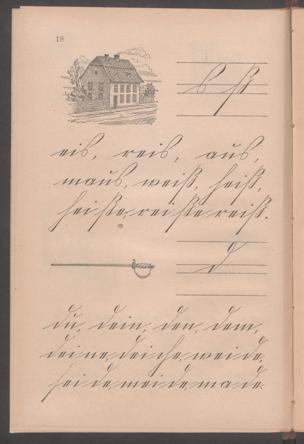 18
s ß
eis, reis, aus,
maus, weiß, heiß,
heiße, reiße, reiß.
d
du, dein, den, dem,
deine, deiche, weide,
seide, meide, made.